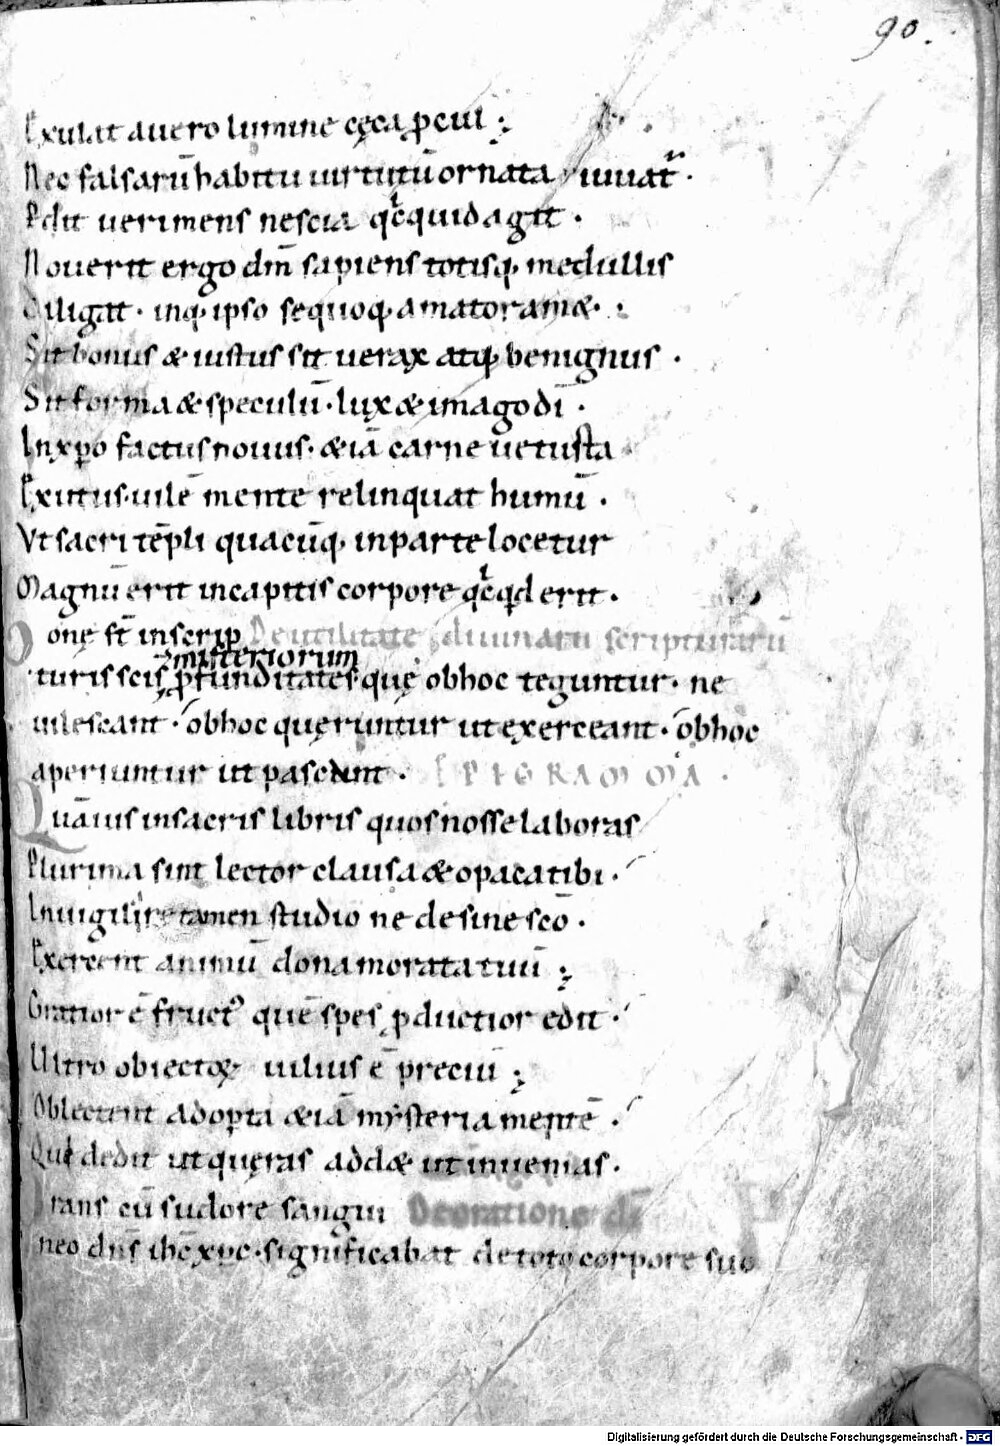 90.
Exulat auero lumine cęca ꝓcul ;
Nec falsarū habitu uirtutū ornata iuuat᷑ ·
Pdit uerimens nescia qͨquid agit ·
Nouerit ergo dm̄ sapiens totisq; medullis
Diligat · inq; ipso sequoq; amator amæ· :
Sit bonus & iustus sit uerax atq; benignus ·
Sit forma & speculū · lux & imago dī ·
Inxp̄o factus nouus · & iā carne uetusta
Exutus · uilē mente relinquat humū ·
Vt sacri tēpli quacūq; inparte locetur
Magnū erit incapitis corpore qͨqd erit ·
Bonę st̄ inscrip De utilitate diuinarū scripturarū
misteriorum
turis scis ꝓfunditates · quę obhoc teguntur · ne
uilescant · obhoc quęruntur ut exerceant · obhoc
aperiuntur ut pascant · EPIGRAMMA ·
Quāuis insacris libris quos nosse laboras
Plurima sint lector clausa & opaca tibi ·
Inuigilare tamen studio ne desine scō ·
Exercent animū dona morata tuū ;
Gratior ē fructꝰ quē spes ꝓductior edit ·
Ultro obiectoꝝ uilius ē preciū ;
Oblectent adoꝑta & iā mẏsteria mentē ·
Qui dedit ut quęras addæ ut inuenias ·
Orans cū sudore sangui De oratione dī
neo dn̄s ihc̄ xp̄c · significabat de toto corpore suo
Digitalisierung gefördert durch die Deutsche Forschungsgemeinschaft · DFG